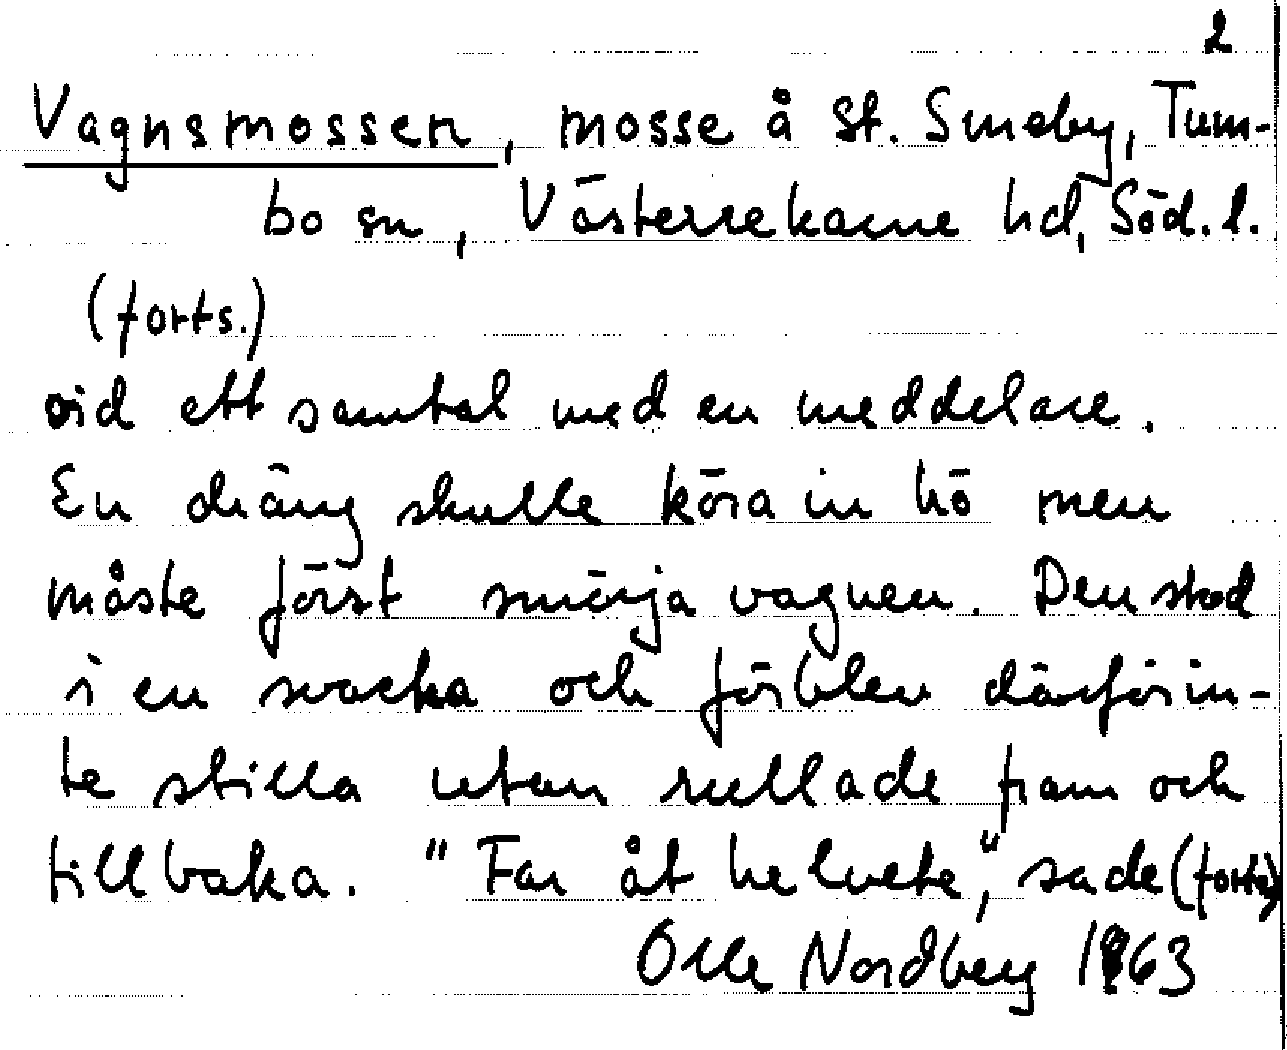 2
Vagnsmossen, mosse å St. Smeby, Tum-
bo sn, Västerrekarne hd, Söd. l.
(forts.)
vid ett samtal med en meddelare.
En dräng skulle köra in hö men
måste först smörja vagnen. Den stod
i en svacka och förblev därför in-
te stilla utan rullade fram och
tillbaka. "Far åt helvete," sade (forts)
Olle Nordberg 1963